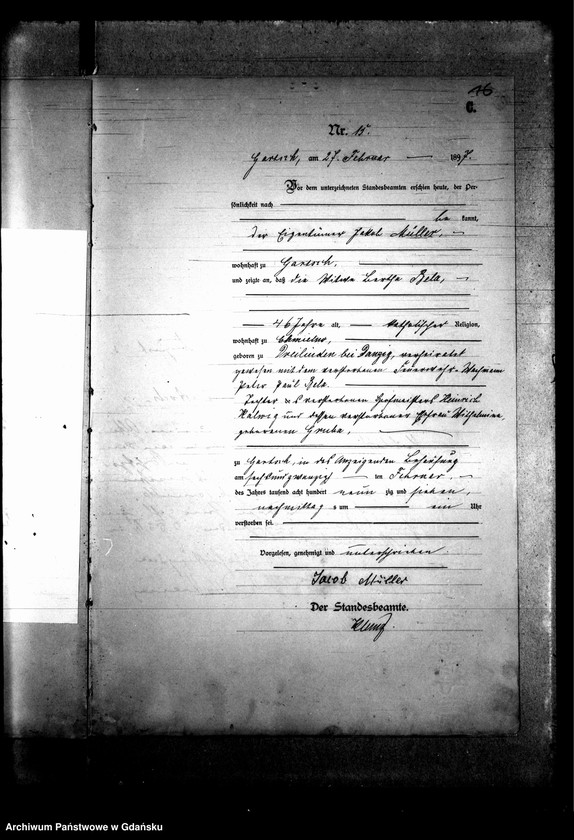 76
C.
Nr. 15.
Gartsch, am 27. Februar 1897.
Vor dem unterzeichneten Standesbeamten erschien heute, der Per-
sönlichkeit nach
be kannt,
der Eigentümer Jakob Müller,
wohnhaft zu Gartsch,
und zeigte an, daß die Witwe Bertha Bela,
46 Jahre alt, katholischer Religion,
wohnhaft zu
geboren zu Dreilinden bei Danzig, verheiratet
gewesen mit dem verstorbenen Feuerwehr-Wachmann
Peter Paul Bela.
Tochter des verstorbenen Hofmeisters Heinrich
und dessen verstorbener Ehefrau Wilhelmine
geborenen
zu Gartsch, in des Anzeigenden Behausung
am sechsundzwanzigsten Februar
des Jahres tausend acht hundert neun zig und sieben,
nachmittag s um ein Uhr
verstorben sei.
Vorgelesen, genehmigt und unterschrieben
Jacob Müller
Der Standesbeamte.
Archiwum Państwowe w Gdańsku